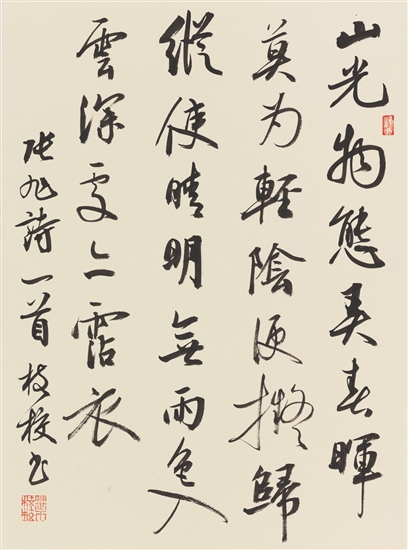 山光物態弄春暉
莫为輕陰便擬歸
縱使晴明無雨色入
雲深處亦霑衣
張旭詩一首 书